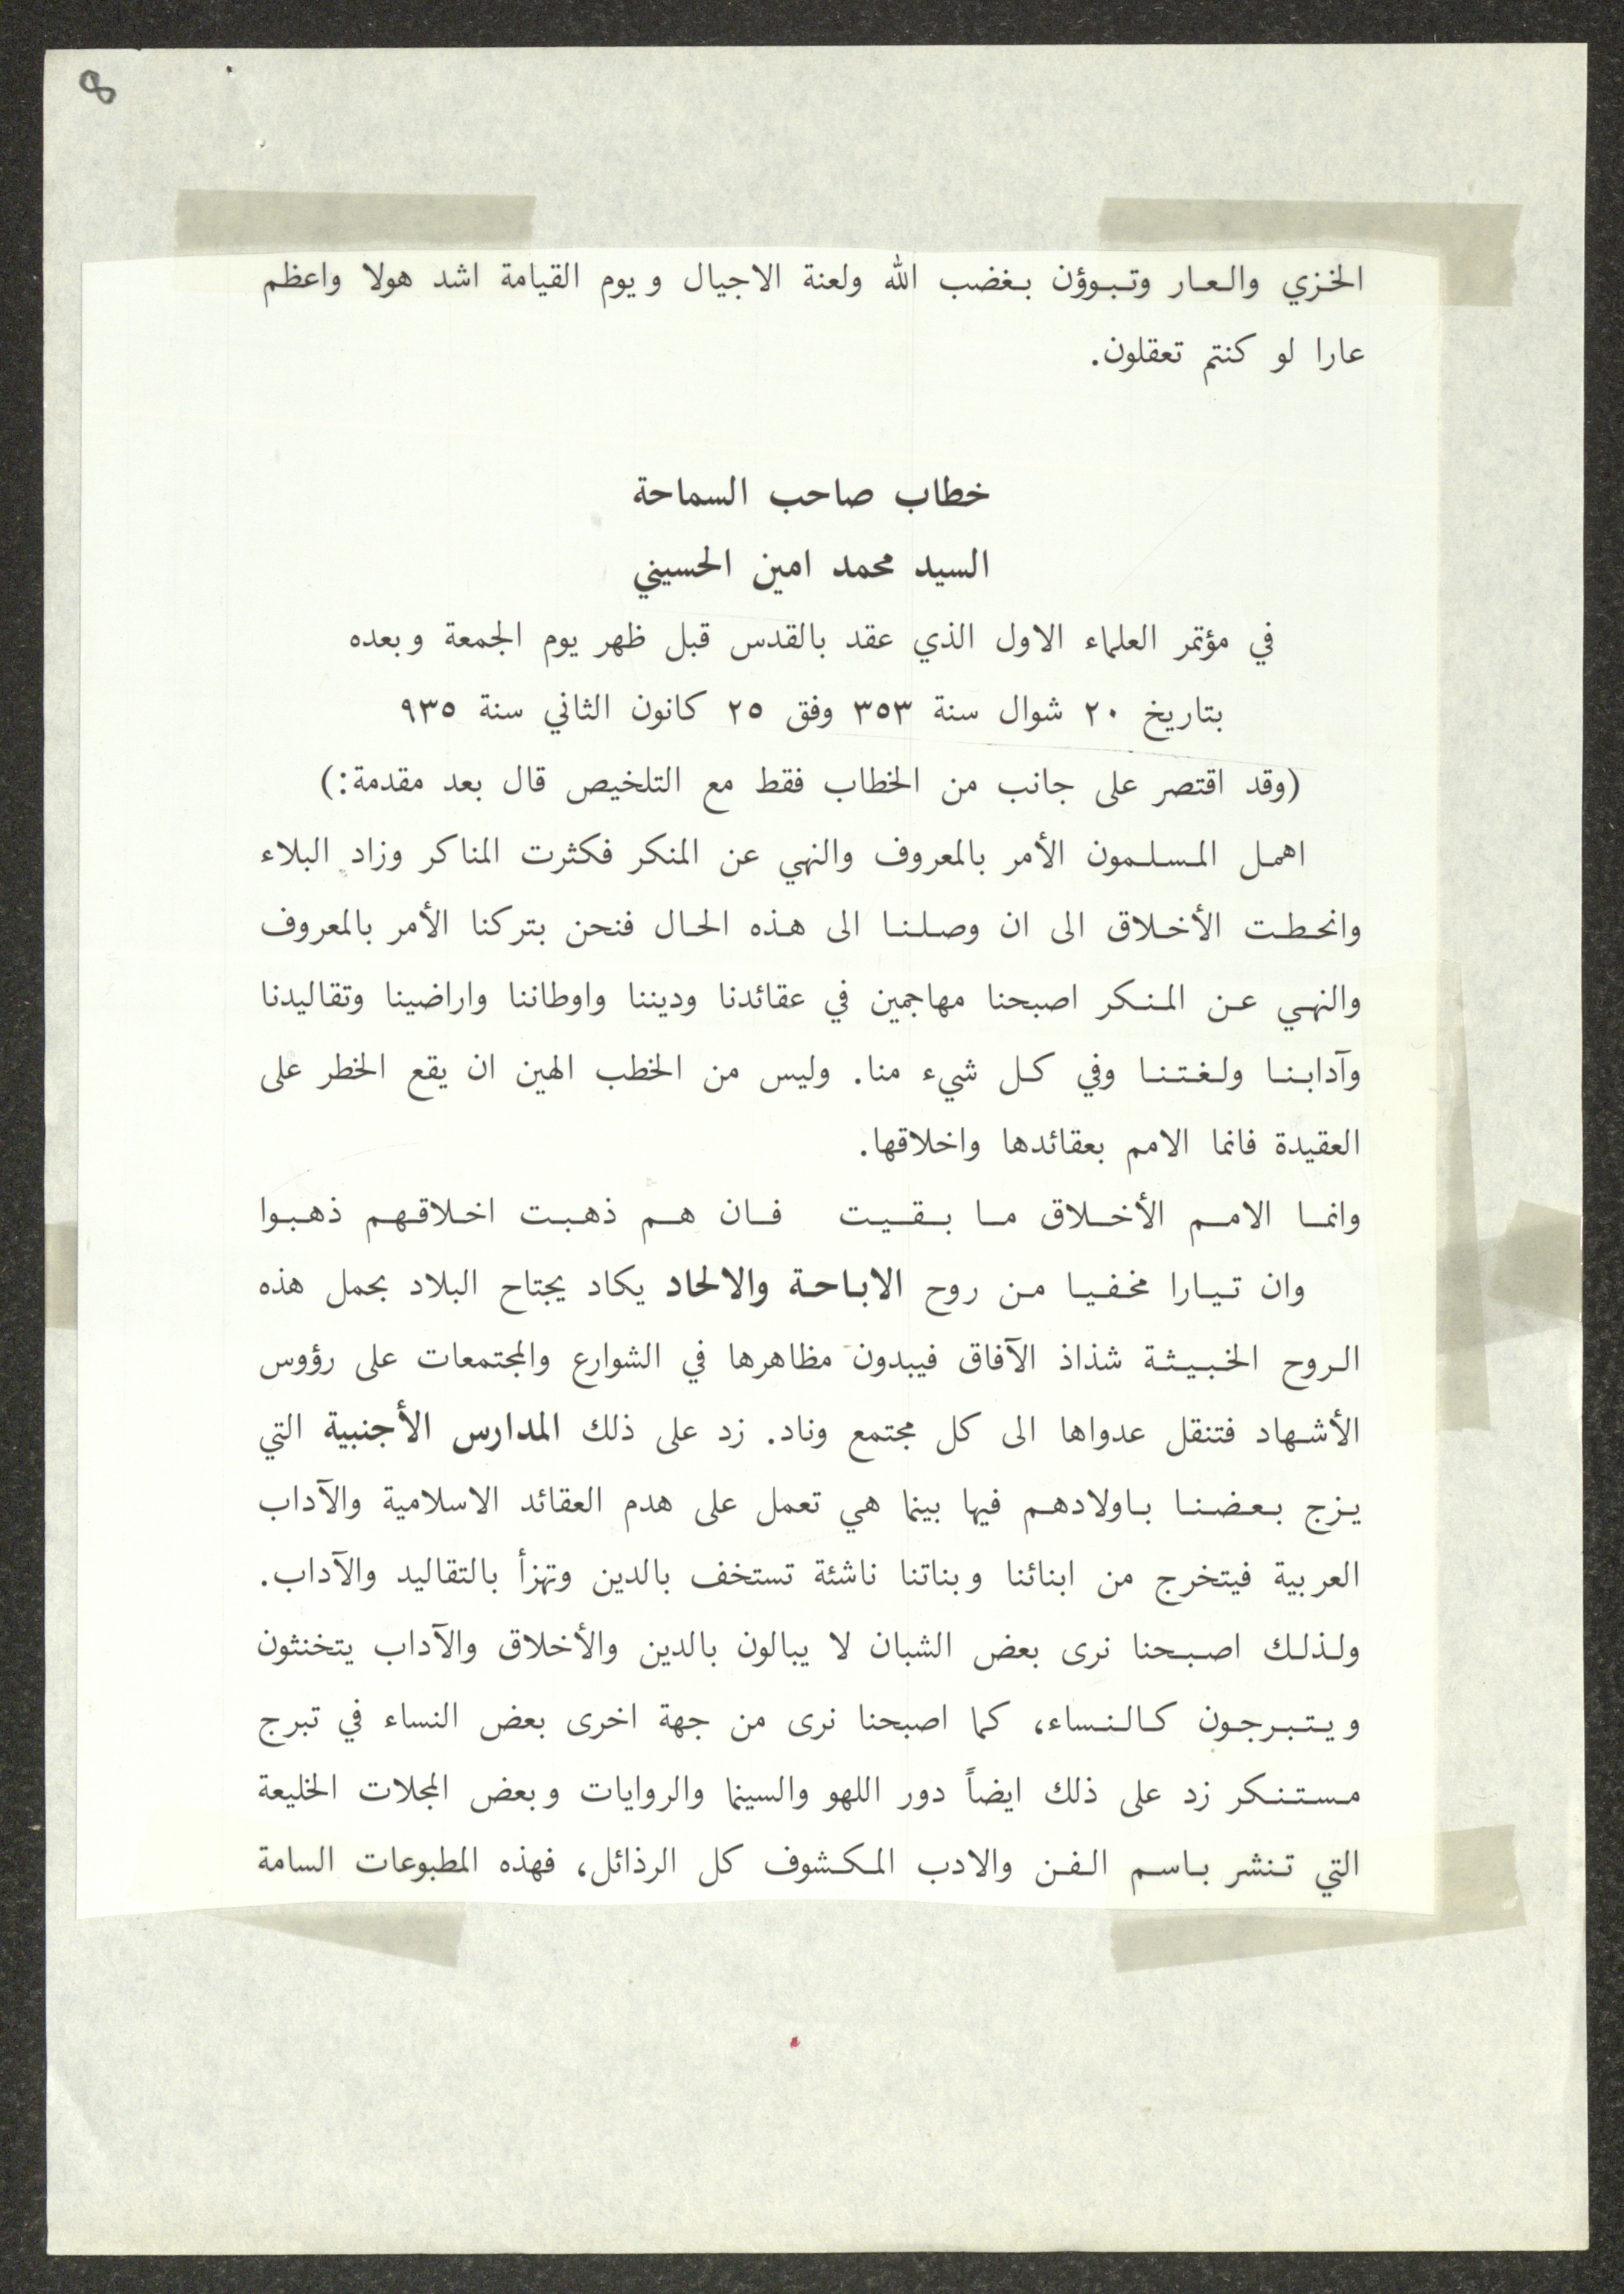 8
الخزي والعار وتبوؤن بغضب الله ولعنة الاجيال ويوم القيامة اشد هولا واعظم
عارا لو كنتم تعقلون.
خطاب صاحب السماحة
السيد محمد امين الحسيني
في مؤتمر العلماء الاول الذي عقد بالقدس قبل ظهر يوم الجمعة وبعده
بتاريخ ٢٠ شوال سنة ٣٥٣ وفق ٢٥ كانون الثاني سنة ٩٣٥
(وقد اقتصر على جانب من الخطاب فقط مع التلخيص قال بعد مقدمة:)
اهمل المسلمون الأمر بالمعروف والنهي عن المنكر فكثرت المناكر وزاد البلاء
وانحطت الأخلاق الى ان وصلنا الى هذه الحال فنحن بتركنا الأمر بالمعروف
والنهي عن المنكر اصبحنا مهاجمين في عقائدنا وديننا واوطاننا واراضينا وتقاليدنا
وآدابنا ولغتنا وفي كل شيء منا. وليس من الخطب الهين ان يقع الخطر على
العقيدة فانما الامم بعقائدها واخلاقها.
وانما الامم الأخلاق ما بقيت فان هم ذهبت اخلاقهم ذهبوا
وان تيارا مخفيا من روح الاباحة والالحاد يكاد يجتاح البلاد بحمل هذه
الروح الخبيثة شذاذ الآفاق فيبدون مظاهرها في الشوارع والمجتمعات على رؤوس
الأشهاد فتنقل عدواها الى كل مجتمع وناد. زد على ذلك المدارس الأجنبية التي
يزج بعضنا باولادهم فيها بينما هي تعمل على هدم العقائد الاسلامية والآداب
العربية فيتخرج من ابنائنا وبناتنا ناشئة تستخف بالدين وتهزأ بالتقاليد والآداب.
ولذلك اصبحنا نرى بعض الشبان لا يبالون بالدين والأخلاق والآداب يتخنثون
ويتبرجون كالنساء، كما اصبحنا نرى من جهة اخرى بعض النساء في تبرج
مستنكر زد على ذلك ايضاً دور اللهو والسينما والروايات وبعض المجلات الخليعة
التي تنشر باسم الفن والادب المكشوف كل الرذائل، فهذه المطبوعات السامة